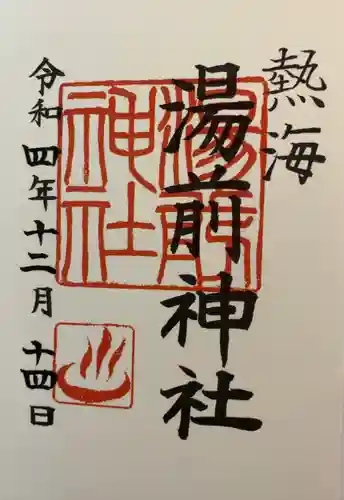 熱海
湯前神社
湯前
神社
令和四年十二月十四日